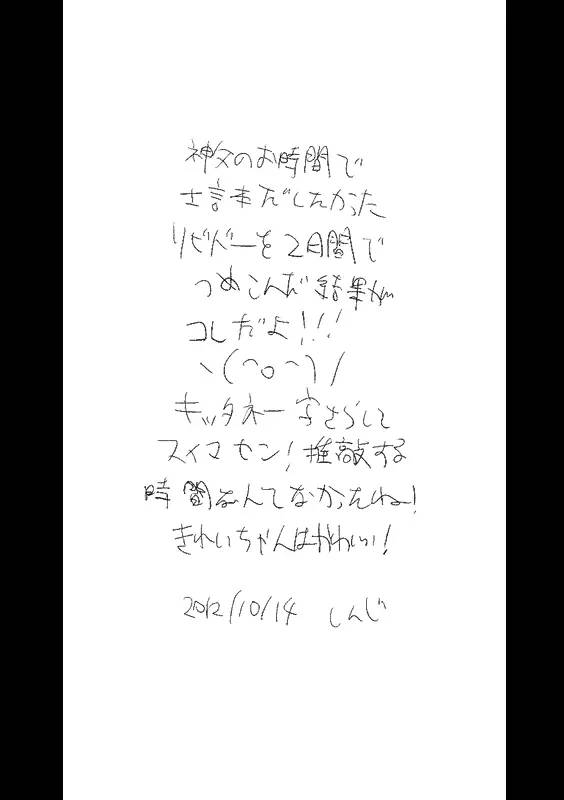 神父のお時間で
士言本だしたかった
リビドーを2日間で
つめこんだ結果が
コレだよ!!!
ヽ(^o^)/
キッタネー字さらして
スイマセン!推敲する
時間なんてなかったね!
きれいちゃんはかわいい!
2012/10/14 しんじ